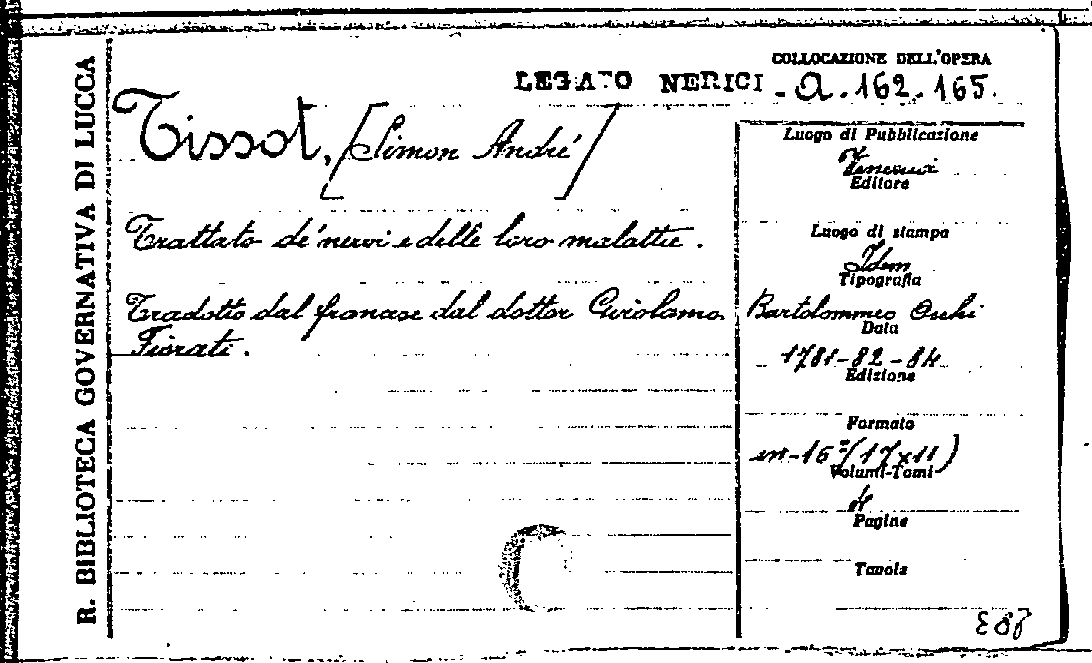 R. BIBLIOTECA GOVERNATIVA DI LUCCA
COLLOCAZIONE DELL'OPERA
LEGATO NERICI - A. 162. 165.
Tissot, [Simon André]
Trattato de' nervi e delle loro malattie.
Tradotto dal francese dal dottor Girolamo
Fiorati.
Luogo di Pubblicazione
Venezia
Editore
Luogo di stampa
Idem
Tipografia
Bartolommeo Occhi
Data
1781-82-84
Edizione
Formato
in-16º (17x11)
Volumi-Tomi
4
Pagine
Tavole